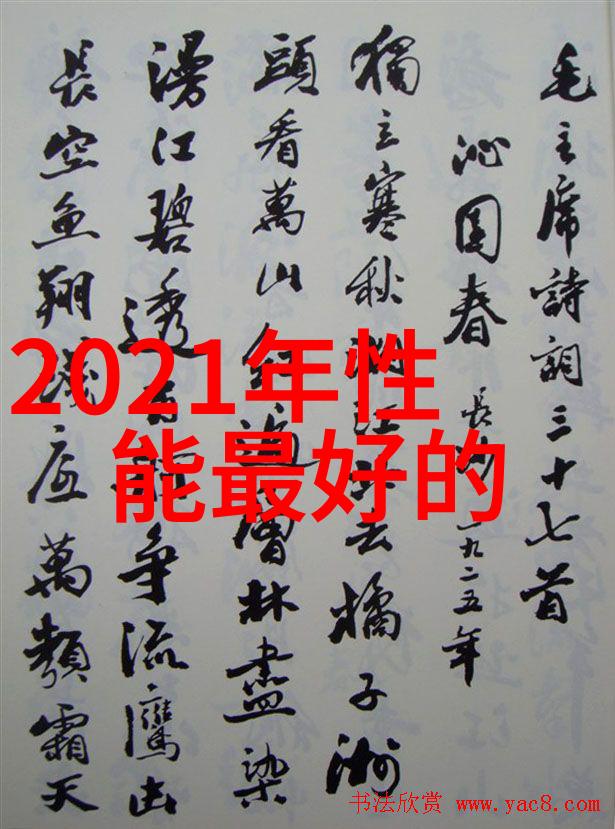 毛主席詩詞三十七首
沁園春 長沙 一九二五年
獨立寒秋湘江北去橘子洲
頭看萬山紅遍層林盡染
漫江碧透百舸争流鷹击
長空鱼翔淺底萬類霜天
2021年性
能最好的
书法欣赏 www.yac8.com